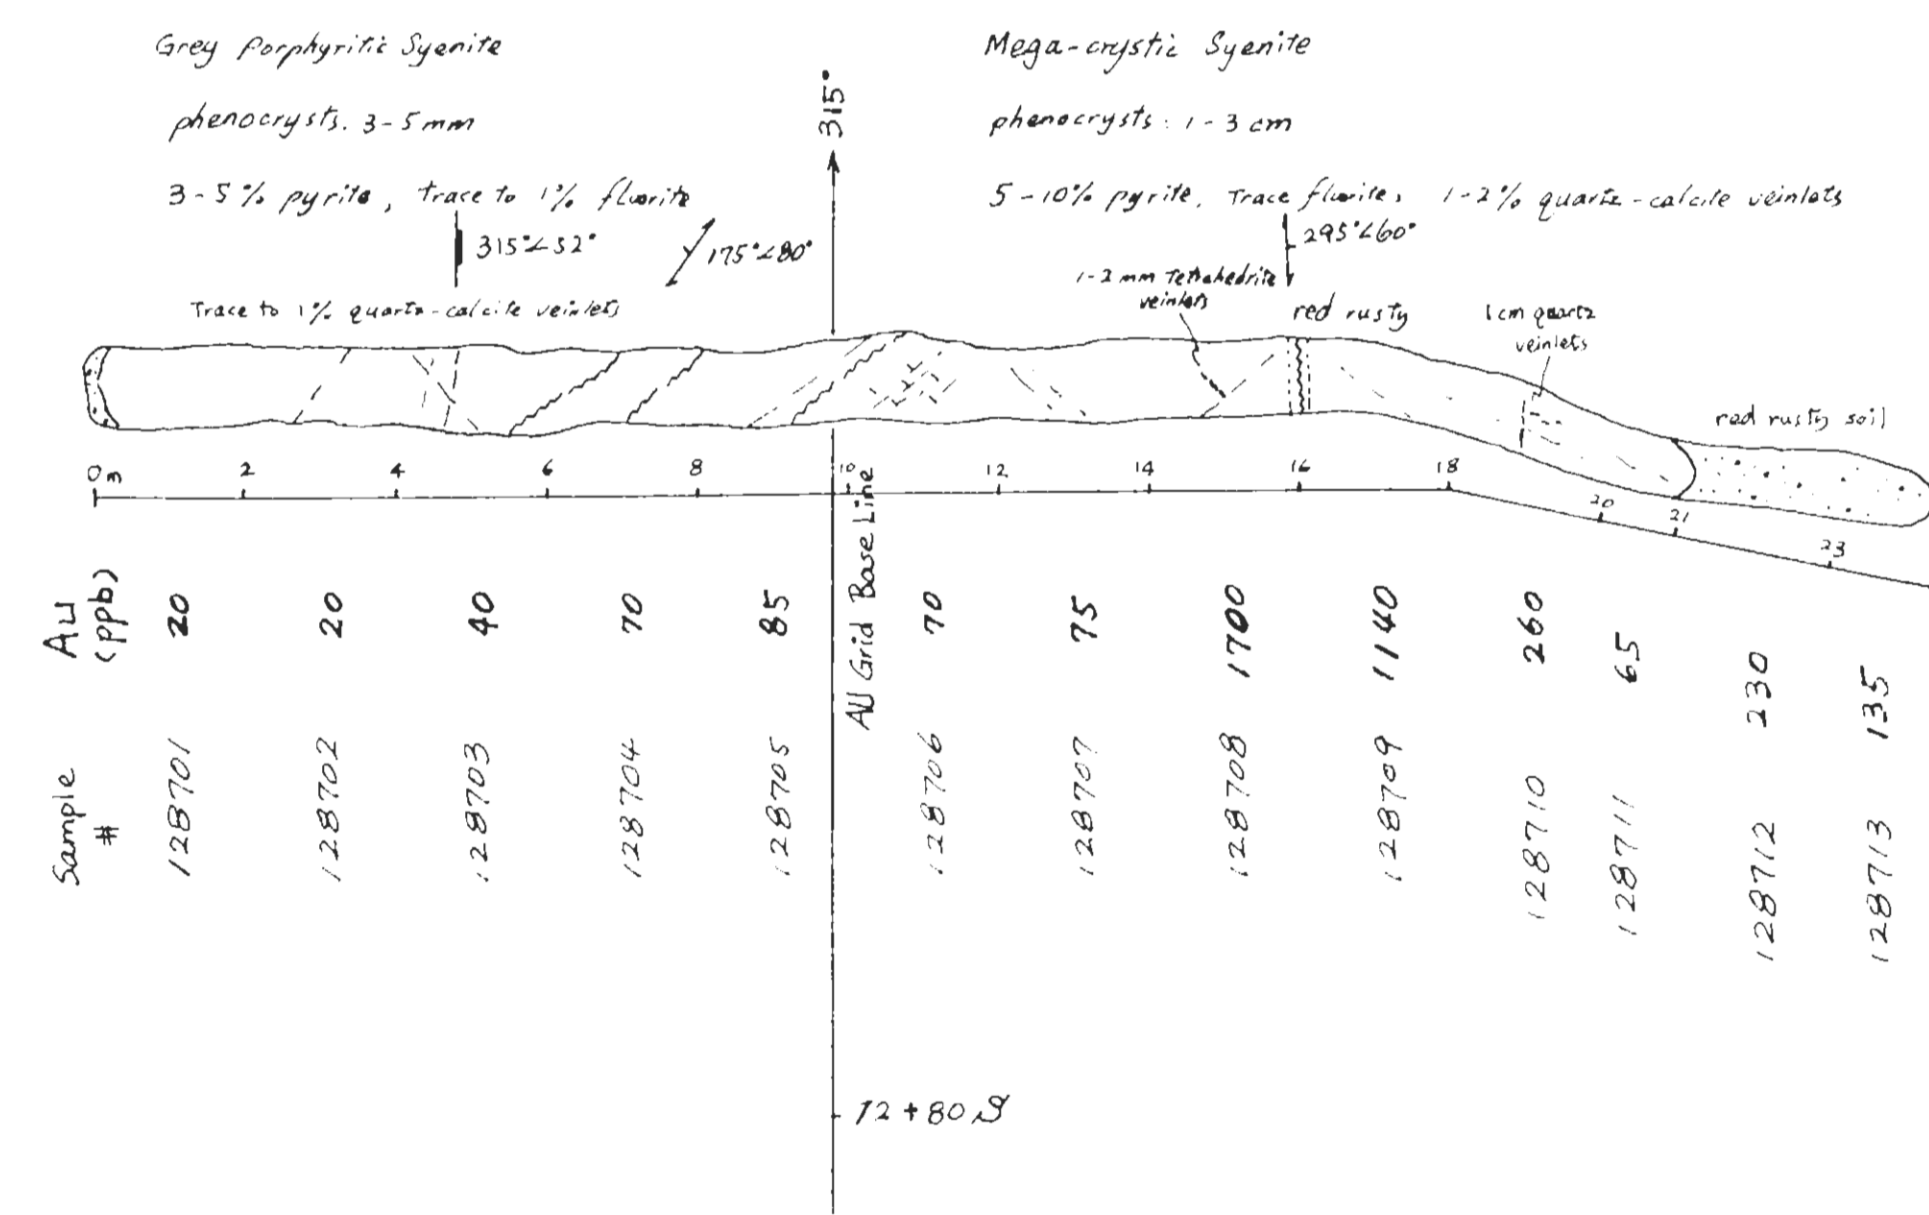 Grey Porphyritic Syenite
phenocrysts. 3-5 mm
3-5% pyrite, trace to 1% fluorite
315°∠52°
175°∠80°
Trace to 1% quartz-calcite veinlets
315°
Mega-crystic Syenite
phenocrysts: 1-3 cm
5-10% pyrite, Trace fluorite, 1-2% quartz-calcite veinlets
295°∠60°
1-2 mm Tetrahedrite
veinlets
red rusty
1 cm quartz
veinlets
red rusty soil
0m 2 4 6 8 10 12 14 16 18 20 21 23
AU Grid Base Line
Au
(ppb)
20 20 40 70 85 70 75 1700 1140 260 65 230 135
Sample
#
128701 128702 128703 128704 128705 128706 128707 128708 128709 128710 128711 128712 128713
12+80 S